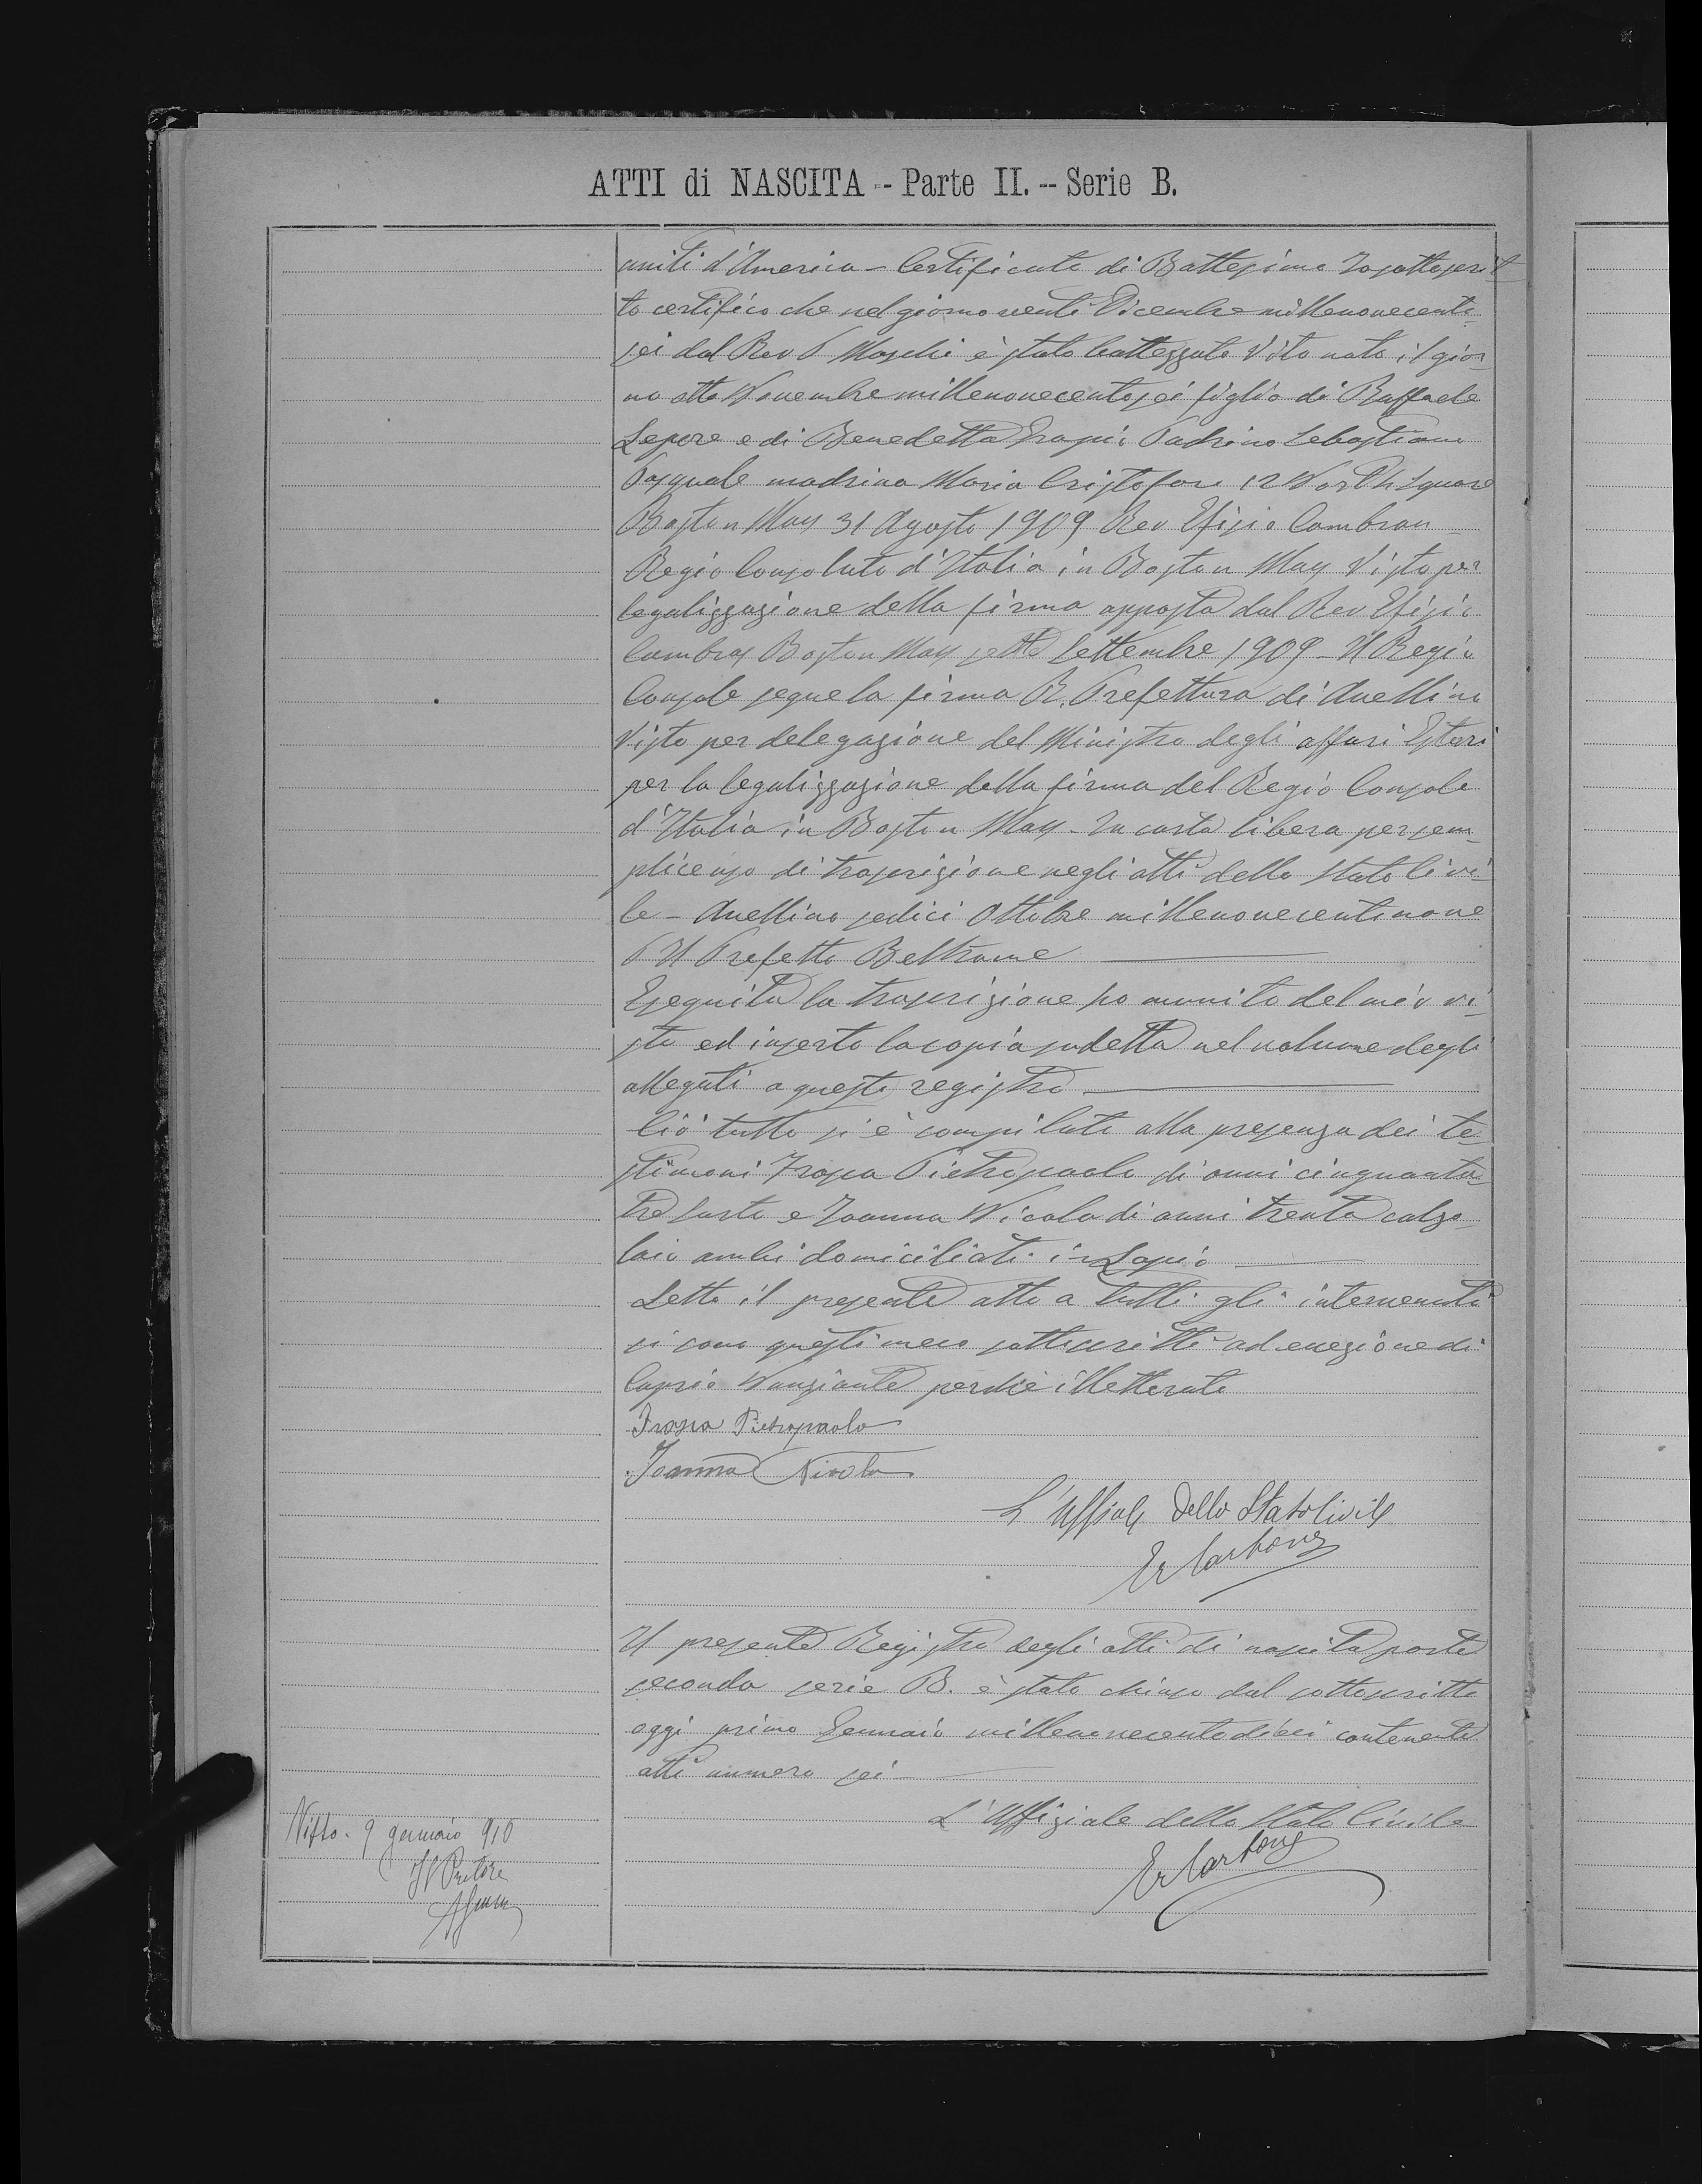 ATTI di NASCITA -- Parte II. -- Serie B.
uniti d'America - Certificato di Battesimo Io sottoscrit
to certifico che nel giorno venti Dicembre millenovecento
sei dal Rev P Maschi è stato battezzato Vito nato il gior
no otto Novembre millenovecentosei figlio di Raffaele
Lepore e di Benedetta Padrino Sebastiano
Pasquale madrina Maria Cristofaro 12 North Square
Boston Mass 31 Agosto 1909 Rev Efisio Cambran
Regio Consolato d'Italia in Boston Mass Visto per
legalizzazione della firma apposta dal Rev Efisio
Cambras Boston Mass sette Settembre 1909 - Il Regio
Console segue la firma R. Prefettura di Avellino
Visto per delegazione del Ministro degli affari Esteri
per la legalizzazione della firma del Regio Console
d'Italia in Boston Mass - In carta libera per sem
plice uso di trascrizione negli atti dello Stato Civi-
le - Avellino sedici Ottobre millenovecentonove
P Il Prefetto Beltrame
Eseguita la trascrizione ho munito del mio vi-
sto ed inserto la copia sudetta nel volume degli
allegati a questo registro
Ciò tutto si è compilato alla presenza dei te
stimoni Frasca Pietropaolo di anni cinquanta
tre sarto e Ioanna Nicola di anni trenta calzo
laio ambi domiciliati in Lapio
Letto il presente atto a tutti gli intervenuti
si sono questi meco sottoscritti ad eccezione di
Caprio Nunziante perchè illetterato
Frasca Pietropaolo
Ioanna Nicola
L'Uffiale dello Stato Civile
E Carbone
Il presente Registro degli atti di nascita parte
seconda serie B. è stato chiuso dal sottoscritto
oggi primo Gennaio millenovecentodieci contenente
atti numero sei
L'Uffiziale dello Stato Civile
E Carbone
Visto. 9 gennaio 910
Il Pretore